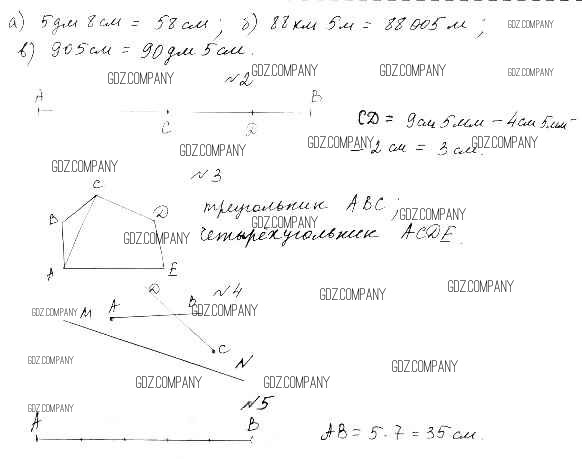 а) 5 дм 8 см = 58 см; б) 88 км 5 м = 88 005 м;
GDZ.COMPANY
в) 905 см = 90 дм 5 см.
GDZ.COMPANY GDZ.COMPANY GDZ.COMPANY GDZ.COMPANY
№2
A C D B
CD = 9 см 5 мм - 4 см 5 мм -
- 2 см = 3 см.
GDZ.COMPANY GDZ.COMPANY GDZ.COMPANY
GDZ.COMPANY
№3
A B C D E
треугольник ABC;
GDZ.COMPANY GDZ.COMPANY
четырёхугольник ACDE.
GDZ.COMPANY
№4
D
GDZ.COMPANY GDZ.COMPANY
M A B
GDZ.COMPANY GDZ.COMPANY
C
N
GDZ.COMPANY GDZ.COMPANY
GDZ.COMPANY GDZ.COMPANY
№5
GDZ.COMPANY
A B
AB = 5 · 7 = 35 см.